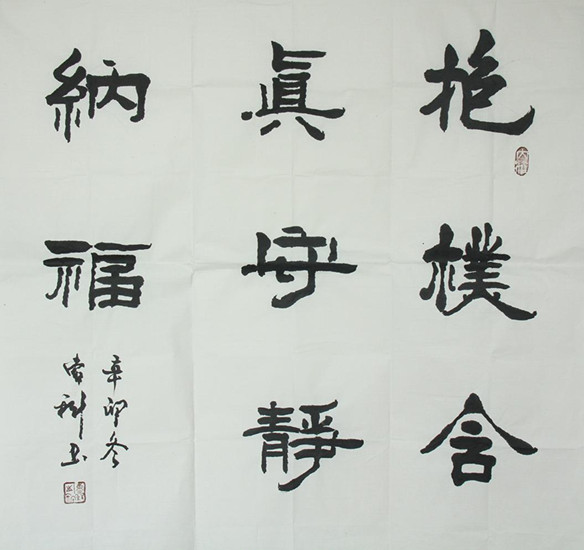 抱樸含
眞守靜
納福
辛卯冬